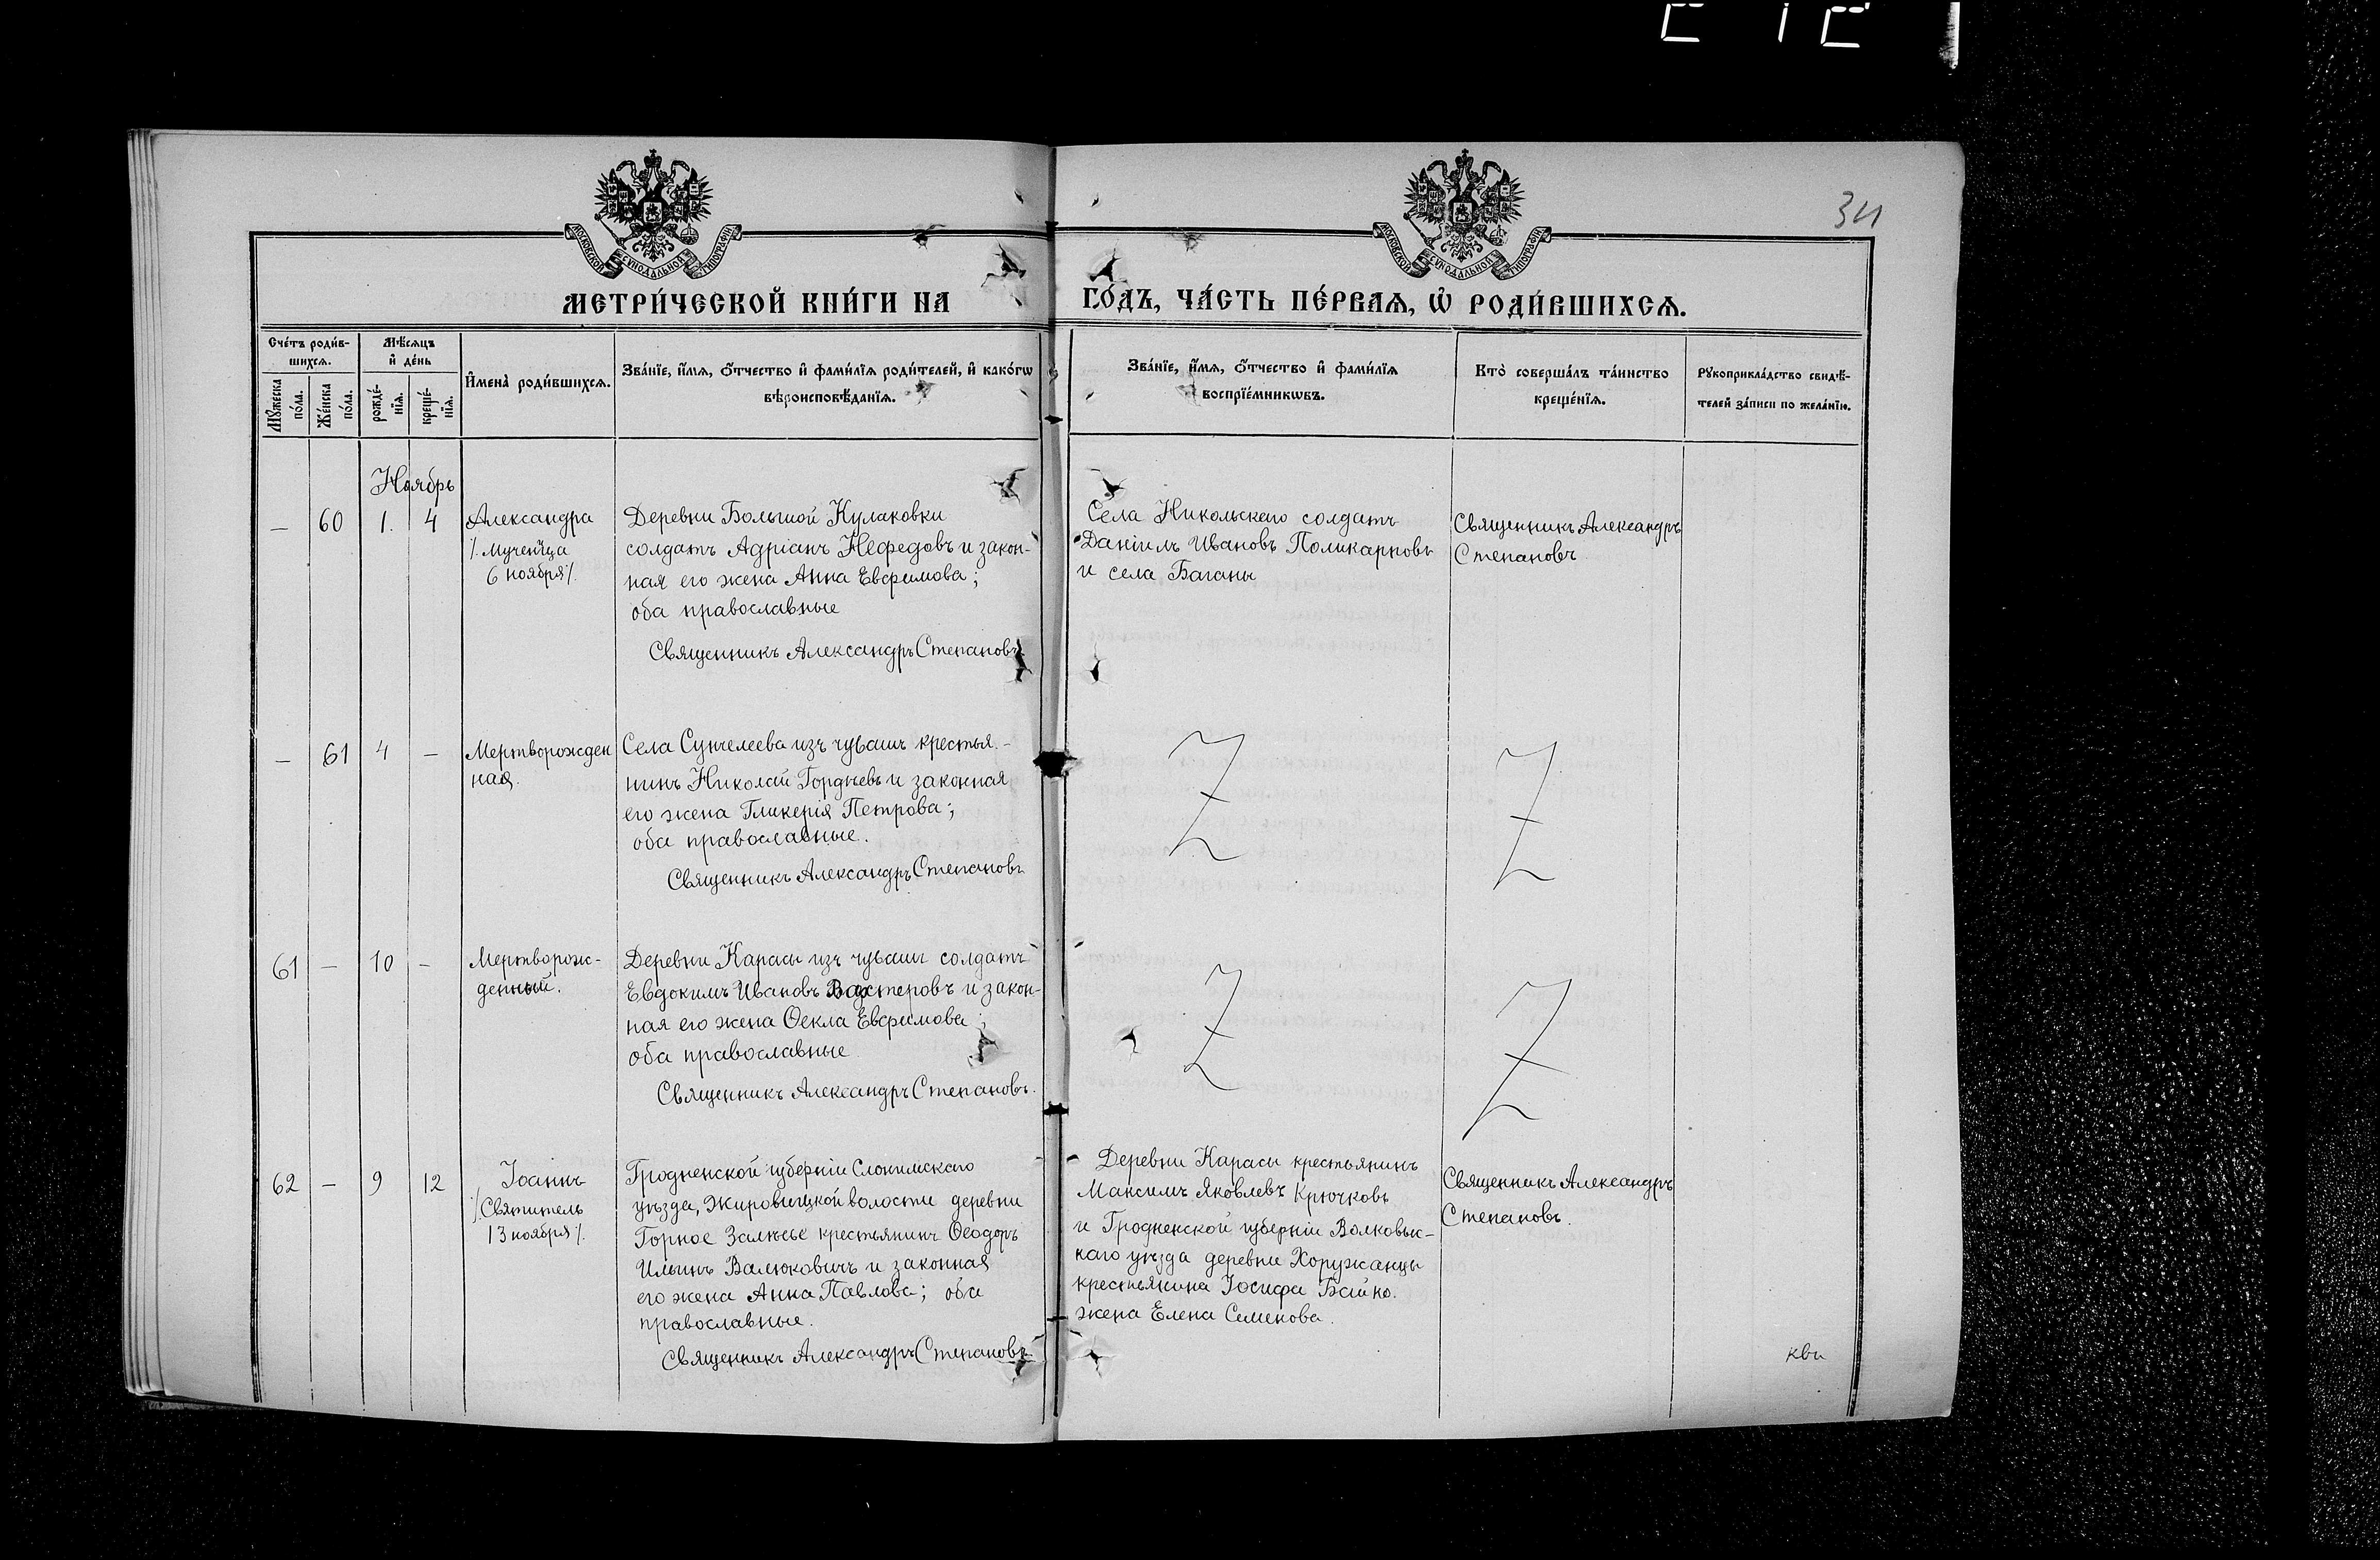 34
МОСКОВСКОЙ СѴНОДАЛЬНОЙ ТИПОГРАФІИ
МОСКОВСКОЙ СѴНОДАЛЬНОЙ ТИПОГРАФІИ
МЕТРИ́ЧЕСКОЙ КНИ́ГИ НА ГО́ДЪ, ЧА́СТЬ ПЕ́РВАѦ, Ѽ РОДИ́ВШИХСѦ.
Сче́тъ роди́в-
шихсѧ.
Мѣ́сѧцъ
и҆ де́нь
Мꙋ́жеска
по́ла.
Же́нска
по́ла.
рожде́-
нїѧ.
креще́-
нїѧ.
И҆мена̀ роди́вшихсѧ.
Зва́нїе, и҆́мѧ, ѻ҆́тчество и҆ фами́лїѧ роди́телей, и҆ како́гѡ
вѣроисповѣ́данїѧ.
Зва́нїе, и҆́мѧ, ѻ҆́тчество и҆ фами́лїѧ
воспрїе́мникѡвъ.
Кто̀ соверша́лъ та́инство
креще́нїѧ.
Рꙋкоприкла́дство свидѣ́-
телей за́писи по жела́нїю.
Ноябрь
— 60 1. 4
Александра
/. мученица
6 ноября/.
Деревни Большой Кулаковки
солдатъ Адріанъ Нефедовъ и закон-
ная его жена Анна Евфимова;
оба православные
Священникъ Александръ Степановъ
Села Никольскаго солдатъ
Даніилъ Ивановъ Поликарповъ
и села Баганы
Священникъ Александръ
Степановъ
— 61 4 —
Мертворожден
ная.
Села Сунчелеева изъ чувашъ крестья-
нинъ Николай Гордѣевъ и законная
его жена Гликерія Петрова;
оба православные.
Священникъ Александръ Степановъ
61 — 10 —
Мертворож-
денный.
Деревни Карасы изъ чувашъ солдатъ
Евдокимъ Ивановъ и закон-
ная его жена Ѳекла Евфимова;
оба православные
Священникъ Александръ Степановъ.
62 — 9 12
Іоаннъ
/. Святитель
13 ноября/.
Гродненской губерніи Слонимскаго
уѣзда, Жировицкой волости деревни
Горное Залѣсье крестьянинъ Ѳеодоръ
Ильинъ Валюковичъ и законная
его жена Анна Павлова; оба
православные.
Священникъ Александръ Степановъ
Деревни Карасы крестьянинъ
Максимъ Яковлевъ Крючковъ
и Гродненской губерніи Волковыс-
каго уѣзда деревни Хоружанцы
крестьянина Іосифа Бойко.
жена Елена Семенова.
Священникъ Александръ
Степановъ.